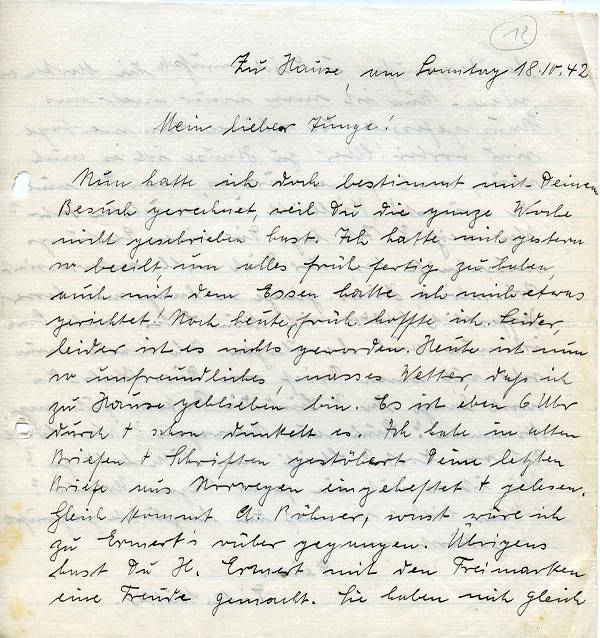 12
Zu Hause, am Sonntag 18.10.42
Mein lieber Junge!
Nun hatte ich doch bestimmt mit Deinem
Besuch gerechnet, weil Du die ganze Woche
nicht geschrieben hast. Ich hatte mich gestern
so beeilt um alles früh fertig zu haben,
auch mit dem Essen hatte ich mich etwas
gerichtet! Noch heute früh hoffte ich. Leider,
leider ist es nichts geworden. Heute ist nun
so unfreundliches nasses Wetter, daß ich
zu Hause geblieben bin. Es ist eben 6 Uhr
durch + schon dunkelt es. Ich habe in alten
Briefen + Schriften gestöbert. Deine letzten
Briefe aus Norwegen eingeheftet + gelesen.
Gleich kommt A. Böhner, sonst wäre ich
zu Ermert's rüber gegangen. Übrigens
hast Du H. Ermert mit den Freimarken
eine Freude gemacht. Sie haben mich gleich